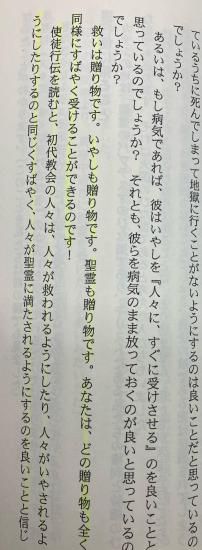 ているうちに死んでしまって地獄に行くことがないようにするのは良いことだと思っているの
でしょうか？
あるいは、もし病気であれば、彼はいやしを『人々に、すぐに受けさせる』のを良いことと
思っているのでしょうか？　それとも、彼らを病気のまま放っておくのが良いと思っているの
でしょうか？
救いは贈り物です。いやしも贈り物です。聖霊も贈り物です。あなたは、どの贈り物も全く
同様にすばやく受けることができるのです！
使徒行伝を読むと、初代教会の人々は、人々が救われるようにしたり、人々がいやされるよ
うにしたりするのと同じくすばやく、人々が聖霊に満たされるようにするのを良いことと信じ